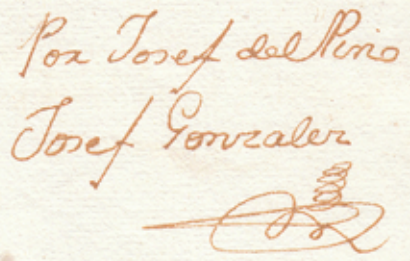 Por Josef del Pino
Josef Gonzalez